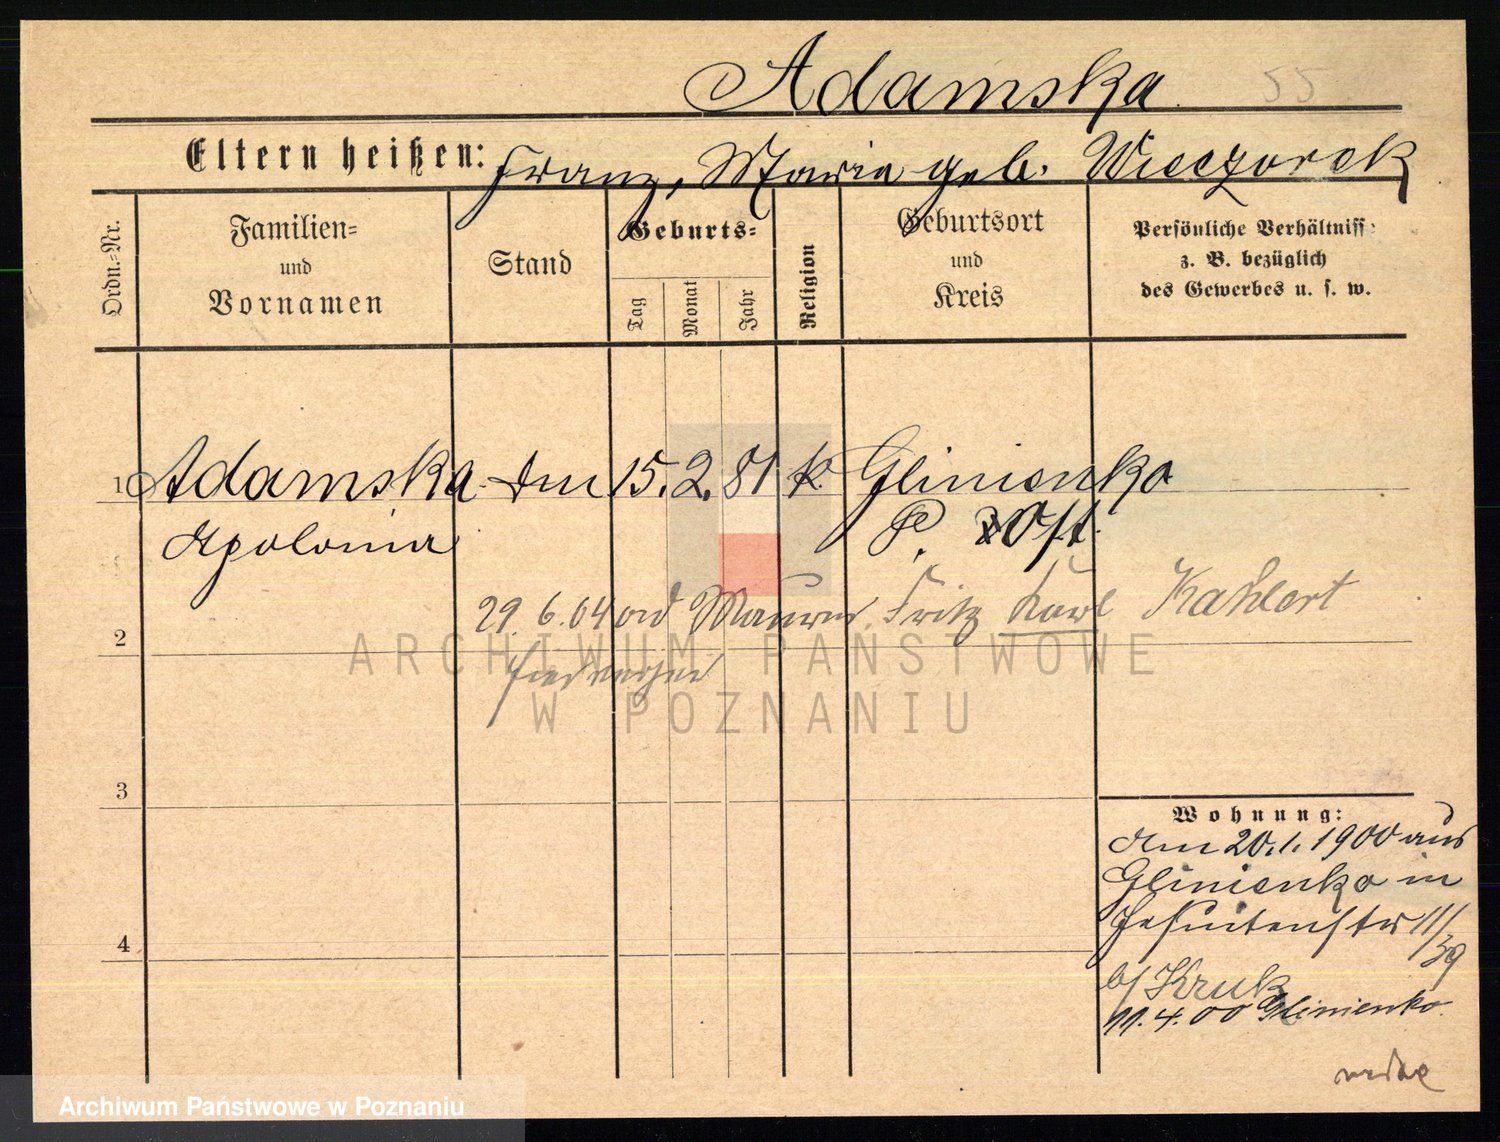 Adamska 55
Eltern heißen: Franz, Maria geb. Wieczorek
Ordn.-Nr.
Familien=
und
Vornamen
Stand
Geburts=
Tag
Monat
Jahr
Religion
Geburtsort
und
Kreis
Persönliche Verhältniss
z. B. bezüglich
des Gewerbes u. s. w.
1 Adamska 15. 2. 81 k. Glinienko
Apolonia P. Ost.
29. 6. 04 Maurer Fritz Karl Kahlert
2
ARCHIWUM PAŃSTWOWE
W POZNANIU
3
4
Wohnung:
den 20.1.1900 aus
Glinienko in
Jesuitenstr 11/39
b/ Kruk
11.4.00 Glinienko
Archiwum Państwowe w Poznaniu